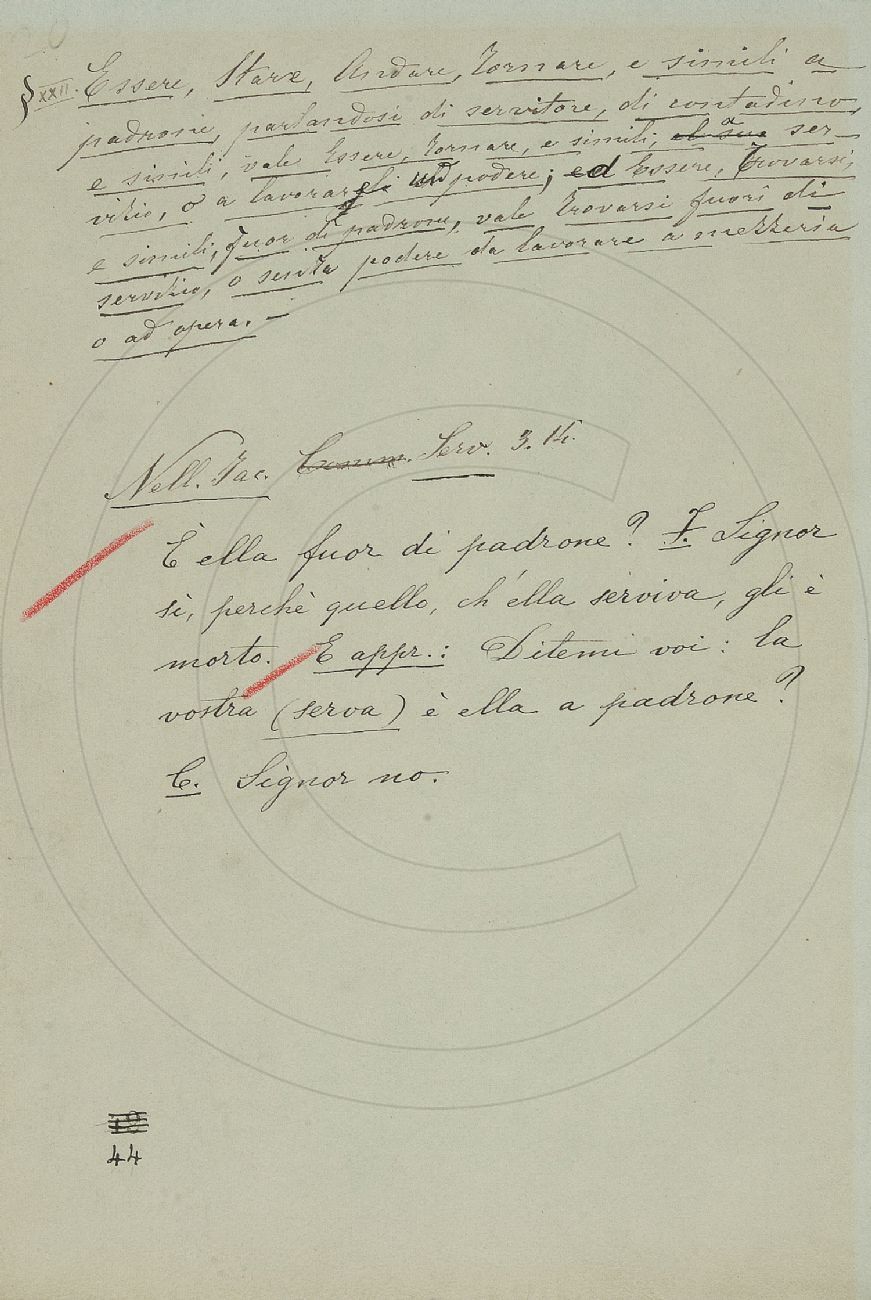 § XXII. Essere, Stare, Andare, Tornare, e simili a
padrone, parlandosi di servitore, di contadino,
e simili, vale Essere, Tornare, e simili, al suo a ser-
vizio, o a lavorargli un podere; ed Essere, Trovarsi,
e simili, fuor di padrone, vale Trovarsi fuori di
servizio, o senza podere da lavorare a mezzeria
o ad opera. –
Nell. Jac. Comm. Serv. 3. 14.
È ella fuor di padrone? F. Signor
sì, perchè quello, ch'ella serviva, gli è
morto. E appr.: Ditemi voi: la
vostra (serva) è ella a padrone?
C. Signor no.
44